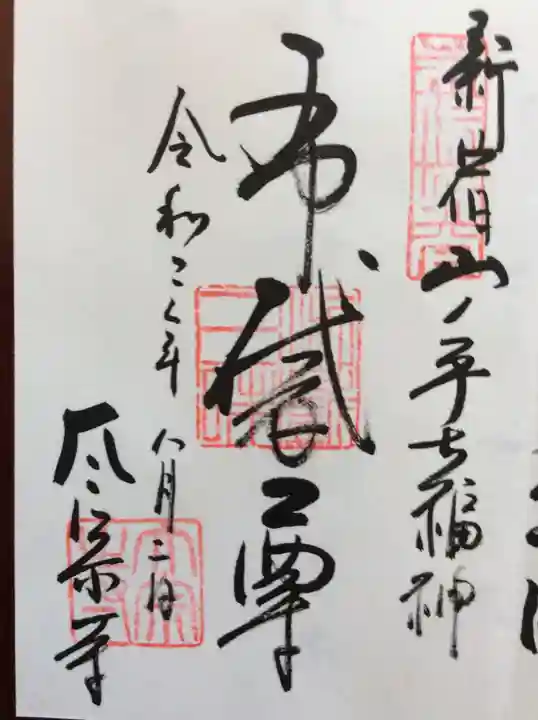 新宿山ノ手七福神
布袋尊
令和二年 八月二日
太宗寺